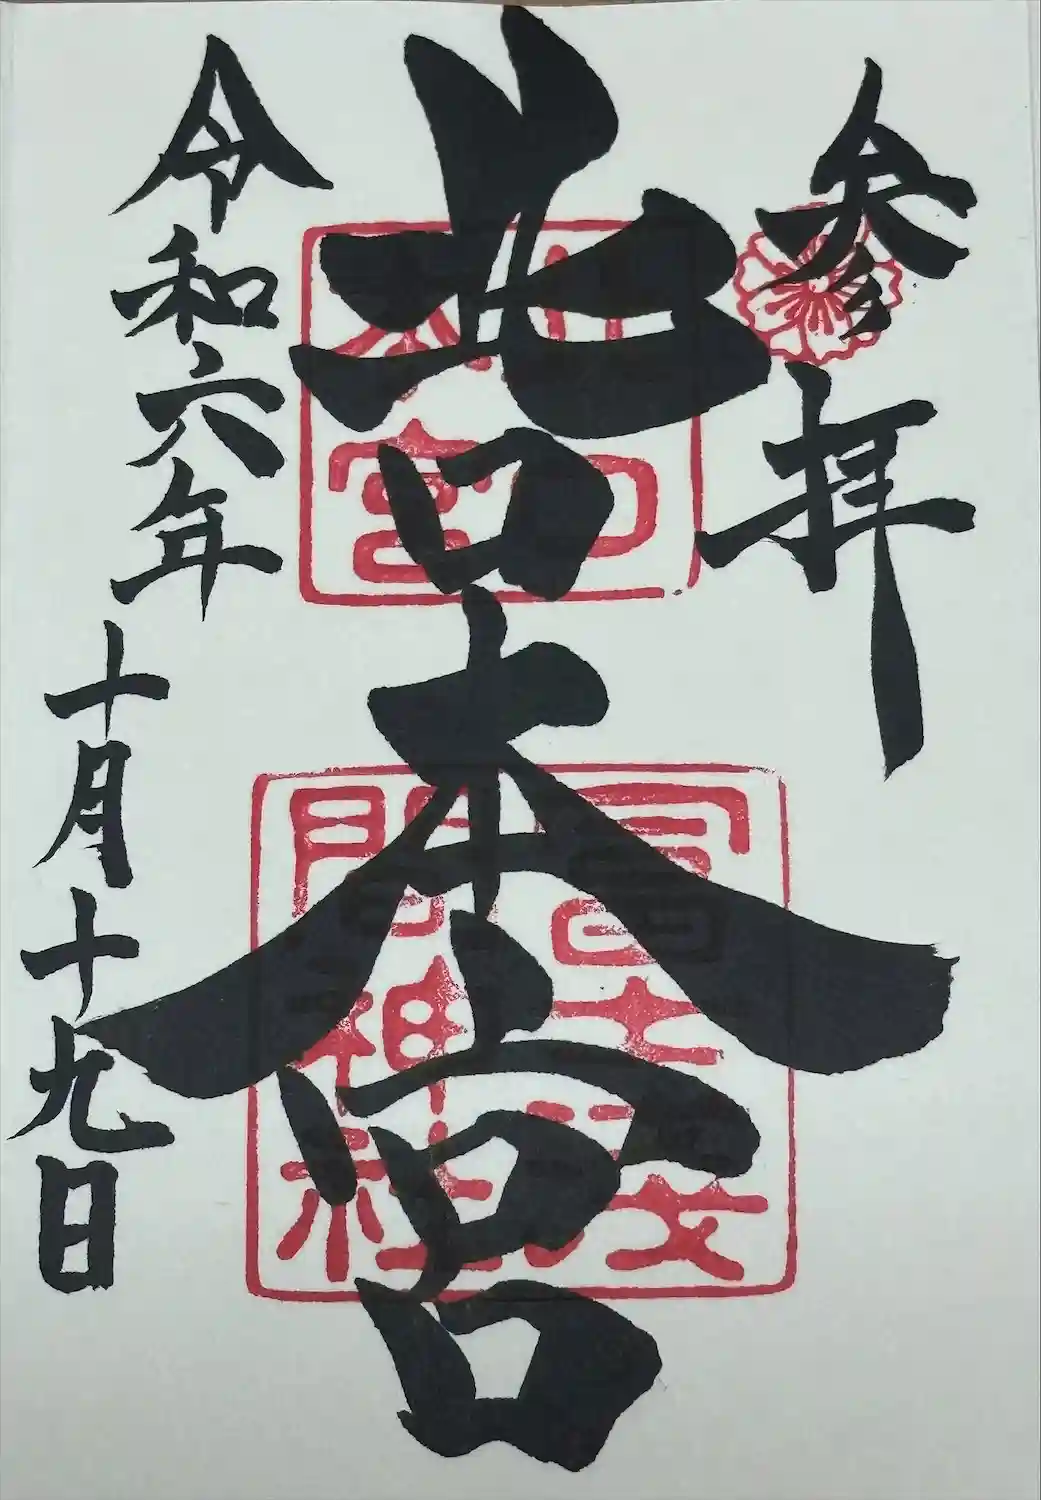 参拝
北口本宮
北口
本宮
冨士浅
間神社
令和六年
十月十九日